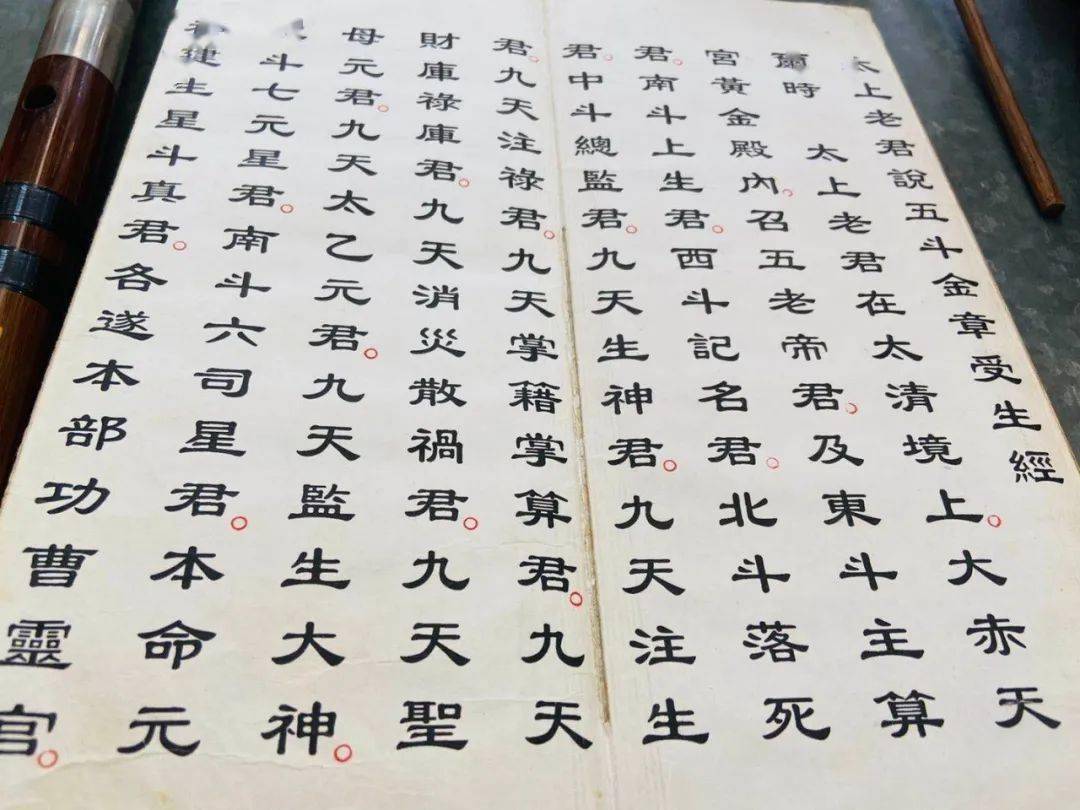 太上老君說五斗金章受生經
爾時 太上老君在太清境上。大赤天
宮黃金殿內。召五老帝君。及東斗主算
君。南斗上生君。西斗記名君。北斗落死
君。中斗總監君。九天生神君。九天注生
君。九天注祿君。九天掌籍掌算君。九天
財庫祿庫君。九天消災散禍君。九天聖
母元君。九天太乙元君。九天監生大神。
斗七元星君。南斗六司星君。本命元
建生星斗真君。各遂本部功曹靈官。